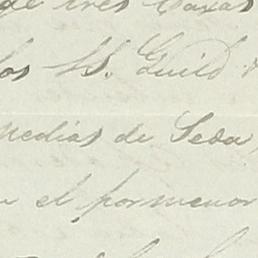 de tres Caxas
los SS. Guild &
Medias de Seda,
el pormenor